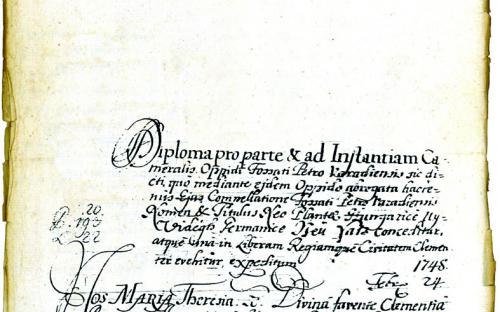 Diploma pro parte & ad Instantiam Ca-
meralis Oppidi Fossati Petro Varadiensis sic di-
cti, quo mediante ejdem Oppido abrogata hacte-
nus Compellatione Fossati Petro Varadiensis
Nomen & Titulus Neo Plantæ Hungarice Uy-
Videgh Germanice Neu Satz Conceditur,
atque Una in Liberam Regiamque Civitatem Clemen-
ter evehitur, expeditum
1748.
Febr 24.
P. 20
193
L 22
Nos MARIA Theresia. Divina favente Clementia